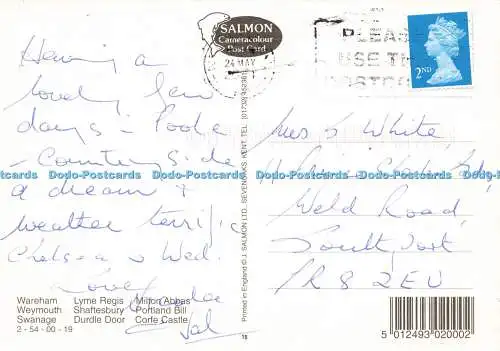 SALMON
Cameracolour
Post Card
24 MAY
PLEASE
USE THE
POSTCODE
2ND
Having a
lovely few
days in Poole
- Countryside
a dream &
weather terrific
Chelsea on Wed.
Love
Val
Mrs S White,
Weld Road,
Southport
PR8 2EU
Wareham Lyme Regis Milton Abbas
Weymouth Shaftesbury Portland Bill
Swanage Durdle Door Corfe Castle
2-54-00-19
Printed in England © J. SALMON LTD., SEVENOAKS, KENT. TEL.
18
5 012493 020002
Dodo-Postcards Dodo-Postcards Dodo-Postcards Dodo-Postcards Dodo-Postcards Dodo-Postcards